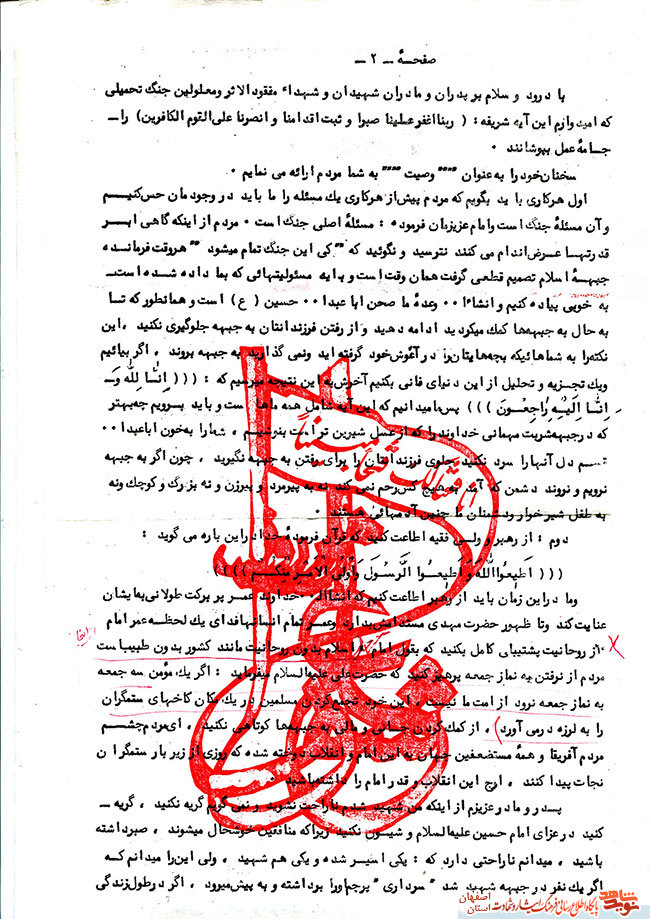 صفحهٔ ـ ۲ ـ
با درود و سلام بر پدران و مادران شهیدان و شهداء مفقود الاثر ومعلولین جنگ تحمیلی
که امیدوارم این آیه شریفه : ( ربنا اغفر علینا صبرا و ثبت اقدامنا و انصرنا علی القوم الکافرین ) را ـ
جامهٔ عمل بپوشانند ۰
سخنان خود را به عنوان " " وصیت " " به شما مردم ارائه می نمایم ۰
اول هرکاری باید بگویم که مردم پیش از هرکاری یك مسئله را ما باید در وجودمان حس کنیم
و آن مسئلهٔ جنگ است را امام عزیزمان فرموده : مسئلهٔ اصلی جنگ است ۰ مردم از اینکه گاهی ابر
قدرتها عرض اندام می کنند نترسید و نگوئید که " کی این جنگ تمام میشود " هروقت فرمانده
جبههٔ اسلام تصمیم قطعی گرفت همان وقت است و باید مسئولیتهائی که بما داده شده است ـ
به خوبی پیاده کنیم و انشاء ا ۰۰ وعدهٔ ما صحن ابا عبدا ۰۰ حسین ( ع ) است و همانطور که تا
به حال به جبهه‌ها کمك میکردید ادامه دهید و از رفتن فرزندانتان به جبهه جلوگیری نکنید ، این
نکته را به شماهائیکه بچه‌هایتان را در آغوش خود گرفته اید ونمی گذارید به جبهه بروند ، اگر بیائیم
ویك تجزیه و تحلیل از این دنیای فانی بکنیم آخرش به این نتیجه میرسیم که : ((( اِنّا لِلّه وَ ـ
ـ اِنّا اِلَیْهِ راجِعُونَ ))) پس ما میدانیم که این آیه شامل همه ماها است و باید برویم چه بهتر
که در جبهه شربت میهمانی خداوند را که از عسل شیرین تر است بنوشیم ، شما را به خون ابا عبدا ۰۰
قسم دل آنها را سرد نکنید جلوی فرزندانتان را برای رفتن به جبهه نگیرید ، چون اگر به جبهه
نرویم و نروند دشمن که آمد به هیچ کس رحم نمی کند نه به پیرمرد و پیرزن و نه بزرگ و کوچك ونه
به طفل شیرخوار ودشمنان ما چنین آدمهائی هستند ۰
دوم : از رهبر و ولی فقیه اطاعت کنید که قرآن فرمودهٔ خدا در این باره می گوید :
((( اَطیعُوا اللهَ وَ اَطیعُوا الرَّسولَ وَ اُولِی الْاَمْرِ مِنْکُمْ )))
وما در این زمان باید از رهبر اطاعت کنیم که انشاا ۰۰ خداوند عمر پر برکت طولانی بایشان
عنایت کند وتا ظهور حضرت مهدی مستدامش بدارد وعمر تمام انسانها فدای یك لحظه عمر امام
۰ از روحانیت پشتیبانی کامل بکنید که بقول امام که اسلام بدون روحانیت مانند کشور بدون طبیب است
مردم از نرفتن به نماز جمعه پرهیز کنید که حضرت علی علیه السلام میفرماید : اگر یك مؤمن سه جمعه
به نماز جمعه نرود از امت ما نیست ، این خود تجمع کردن مسلمین در یك مکان کاخهای ستمگران
را به لرزه درمی آورد ) ، از کمك کردن جانی و مالی به جبهه‌ها کوتاهی نکنید ، ای مردم چشم
مردم آفریقا و همهٔ مستضعفین جهان به این امام و انقلاب دوخته شده که روزی از زیر بار ستمگران
نجات پیدا کنند ، ارج این انقلاب و قدر امام را داشته باشید ۰
پدر و مادر عزیزم از اینکه من شهید شدم ناراحت نشوید و نمی گویم گریه نکنید ، گریه ـ
کنید در عزای امام حسین علیه السلام و شیون نکنید زیرا که منافقین خوشحال میشوند ، صبر داشته
باشید ، میدانم ناراحتی دارد که : یکی اسیر شده و یکی هم شهید ، ولی این را میدانم که
اگر یك نفر در جبهه شهید شد " سرداری " پرچم او را بر داشته و به پیش میرود ، اگر در طول زندگی
نوید شاهد
پایگاه اطلاع رسانی فرهنگ ایثار و شهادت استان اصفهان